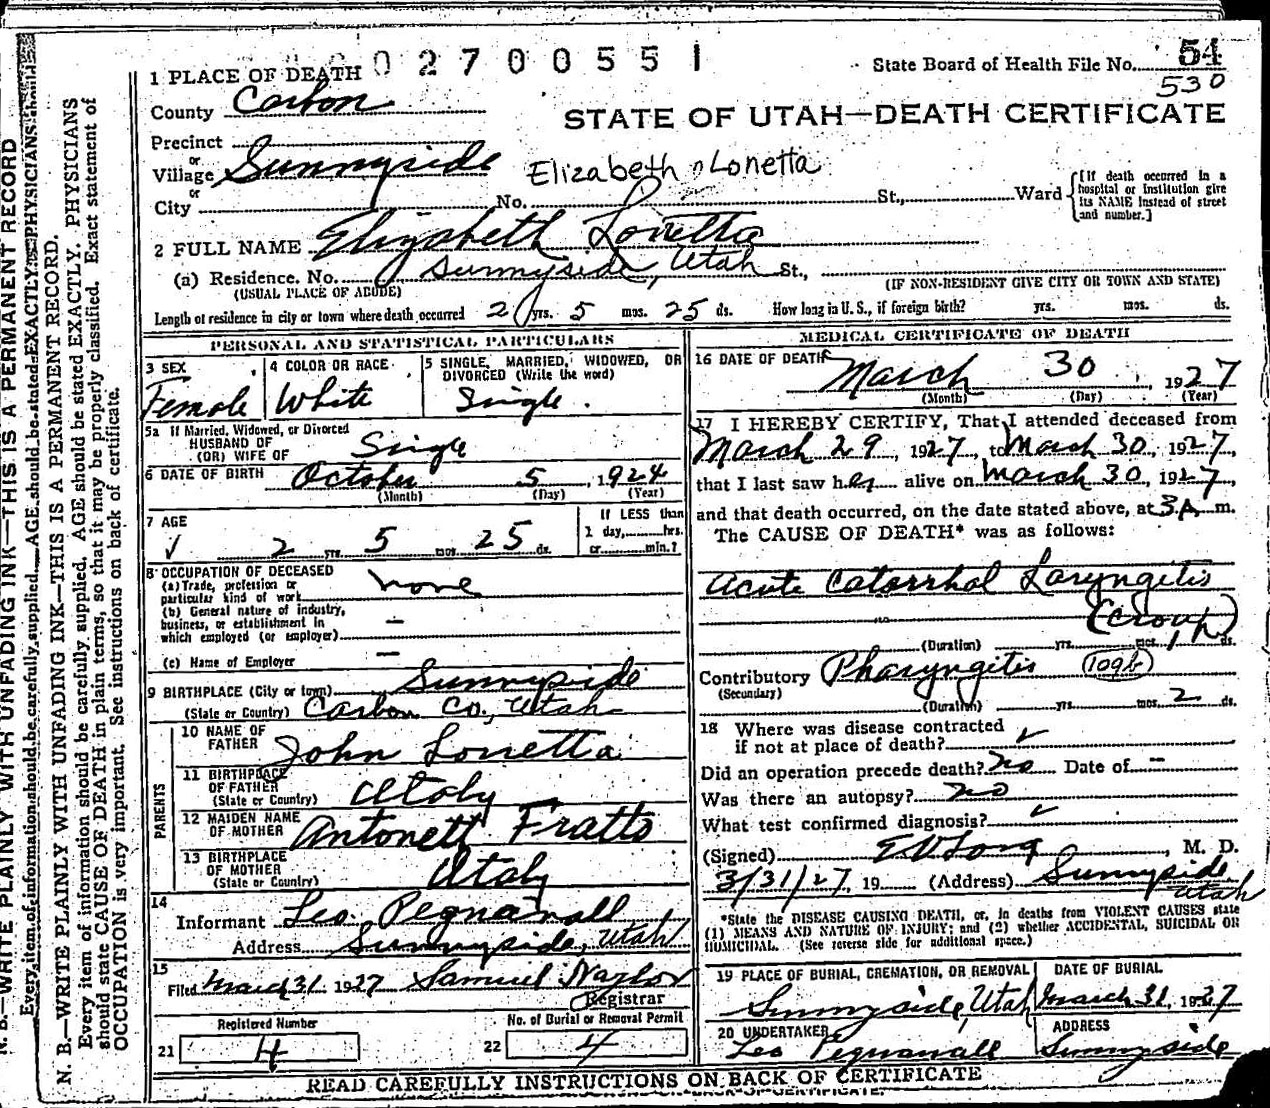 0270055 1
State Board of Health File No. 54
530
1 PLACE OF DEATH
County Carbon
STATE OF UTAH—DEATH CERTIFICATE
Precinct
or
Village Sunnyside
Elizabeth Lonetta
or
City No. St., Ward
[If death occurred in a hospital or institution give its NAME instead of street and number.]
2 FULL NAME Elizabeth Lonetta
(a) Residence. No. Sunnyside, Utah St.,
(USUAL PLACE OF ABODE)
(IF NON-RESIDENT GIVE CITY OR TOWN AND STATE)
Length of residence in city or town where death occurred 2 yrs. 5 mos. 25 ds. How long in U. S., if foreign birth? yrs. mos. ds.
PERSONAL AND STATISTICAL PARTICULARS
3 SEX
Female
4 COLOR OR RACE
White
5 SINGLE, MARRIED, WIDOWED, OR
DIVORCED (Write the word)
Single.
5a If Married, Widowed, or Divorced
HUSBAND OF
(OR) WIFE OF Single
6 DATE OF BIRTH October 5, 1924
(Month) (Day) (Year)
7 AGE
2 yrs. 5 mos. 25 ds.
If LESS than
1 day, hrs.
or min.?
8 OCCUPATION OF DECEASED
(a) Trade, profession or
particular kind of work none
(b) General nature of industry,
business, or establishment in
which employed (or employer) —
(c) Name of Employer —
9 BIRTHPLACE (City or town) Sunnyside
(State or Country) Carbon Co., Utah
PARENTS
10 NAME OF
FATHER John Lonetta
11 BIRTHPLACE
OF FATHER
(State or Country) Italy
12 MAIDEN NAME
OF MOTHER Antonett Fratto
13 BIRTHPLACE
OF MOTHER
(State or Country) Italy
14
Informant Leo. Pegnanall
Address Sunnyside, Utah
15
Filed March 31 1927 Samuel Naylor
Registrar
Registered Number
21 4
No. of Burial or Removal Permit
22 4
MEDICAL CERTIFICATE OF DEATH
16 DATE OF DEATH March 30, 1927
(Month) (Day) (Year)
17 I HEREBY CERTIFY, That I attended deceased from
March 29, 1927, to March 30, 1927,
that I last saw her alive on March 30, 1927,
and that death occurred, on the date stated above, at 3 A m.
The CAUSE OF DEATH* was as follows:
Acute Catarrhal Laryngitis
(croup)
(Duration) yrs. mos. 1 ds.
Contributory Pharyngitis 109b
(Secondary)
(Duration) yrs. mos. 2 ds.
18 Where was disease contracted
if not at place of death?
Did an operation precede death? no Date of —
Was there an autopsy? no
What test confirmed diagnosis?
(Signed) E V Long, M. D.
3/31/27, 19 (Address) Sunnyside
Utah
*State the DISEASE CAUSING DEATH, or, in deaths from VIOLENT CAUSES state
(1) MEANS AND NATURE OF INJURY; and (2) whether ACCIDENTAL, SUICIDAL OR
HOMICIDAL. (See reverse side for additional space.)
19 PLACE OF BURIAL, CREMATION, OR REMOVAL
Sunnyside, Utah
DATE OF BURIAL
March 31, 1927
20 UNDERTAKER
Leo Pegnanall
ADDRESS
Sunnyside
READ CAREFULLY INSTRUCTIONS ON BACK OF CERTIFICATE
N. B.—WRITE PLAINLY WITH UNFADING INK—THIS IS A PERMANENT RECORD.
Every item of information should be carefully supplied. AGE should be stated EXACTLY. PHYSICIANS
should state CAUSE OF DEATH in plain terms, so that it may be properly classified. Exact statement of
OCCUPATION is very important. See instructions on back of certificate.
N. B.—WRITE PLAINLY WITH UNFADING INK—THIS IS A PERMANENT RECORD
Every item of information should be carefully supplied. AGE should be stated EXACTLY. PHYSICIANS should